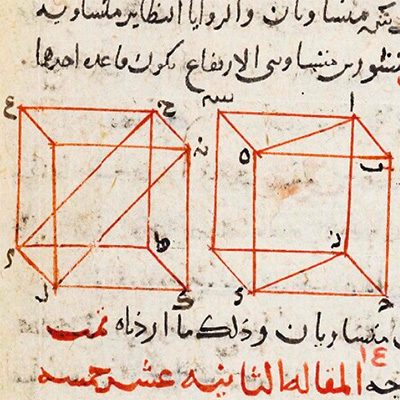 متساويان والزوايا النظاير متساويه
منشورين متساويى الارتفاع تكون قاعده احدهما
ع ح س ا
ن ه ب
م ط د
ل ك ج
متساويان وذلك ما اردناه تمت
١٤
المقاله الثانيه عشر خمسه